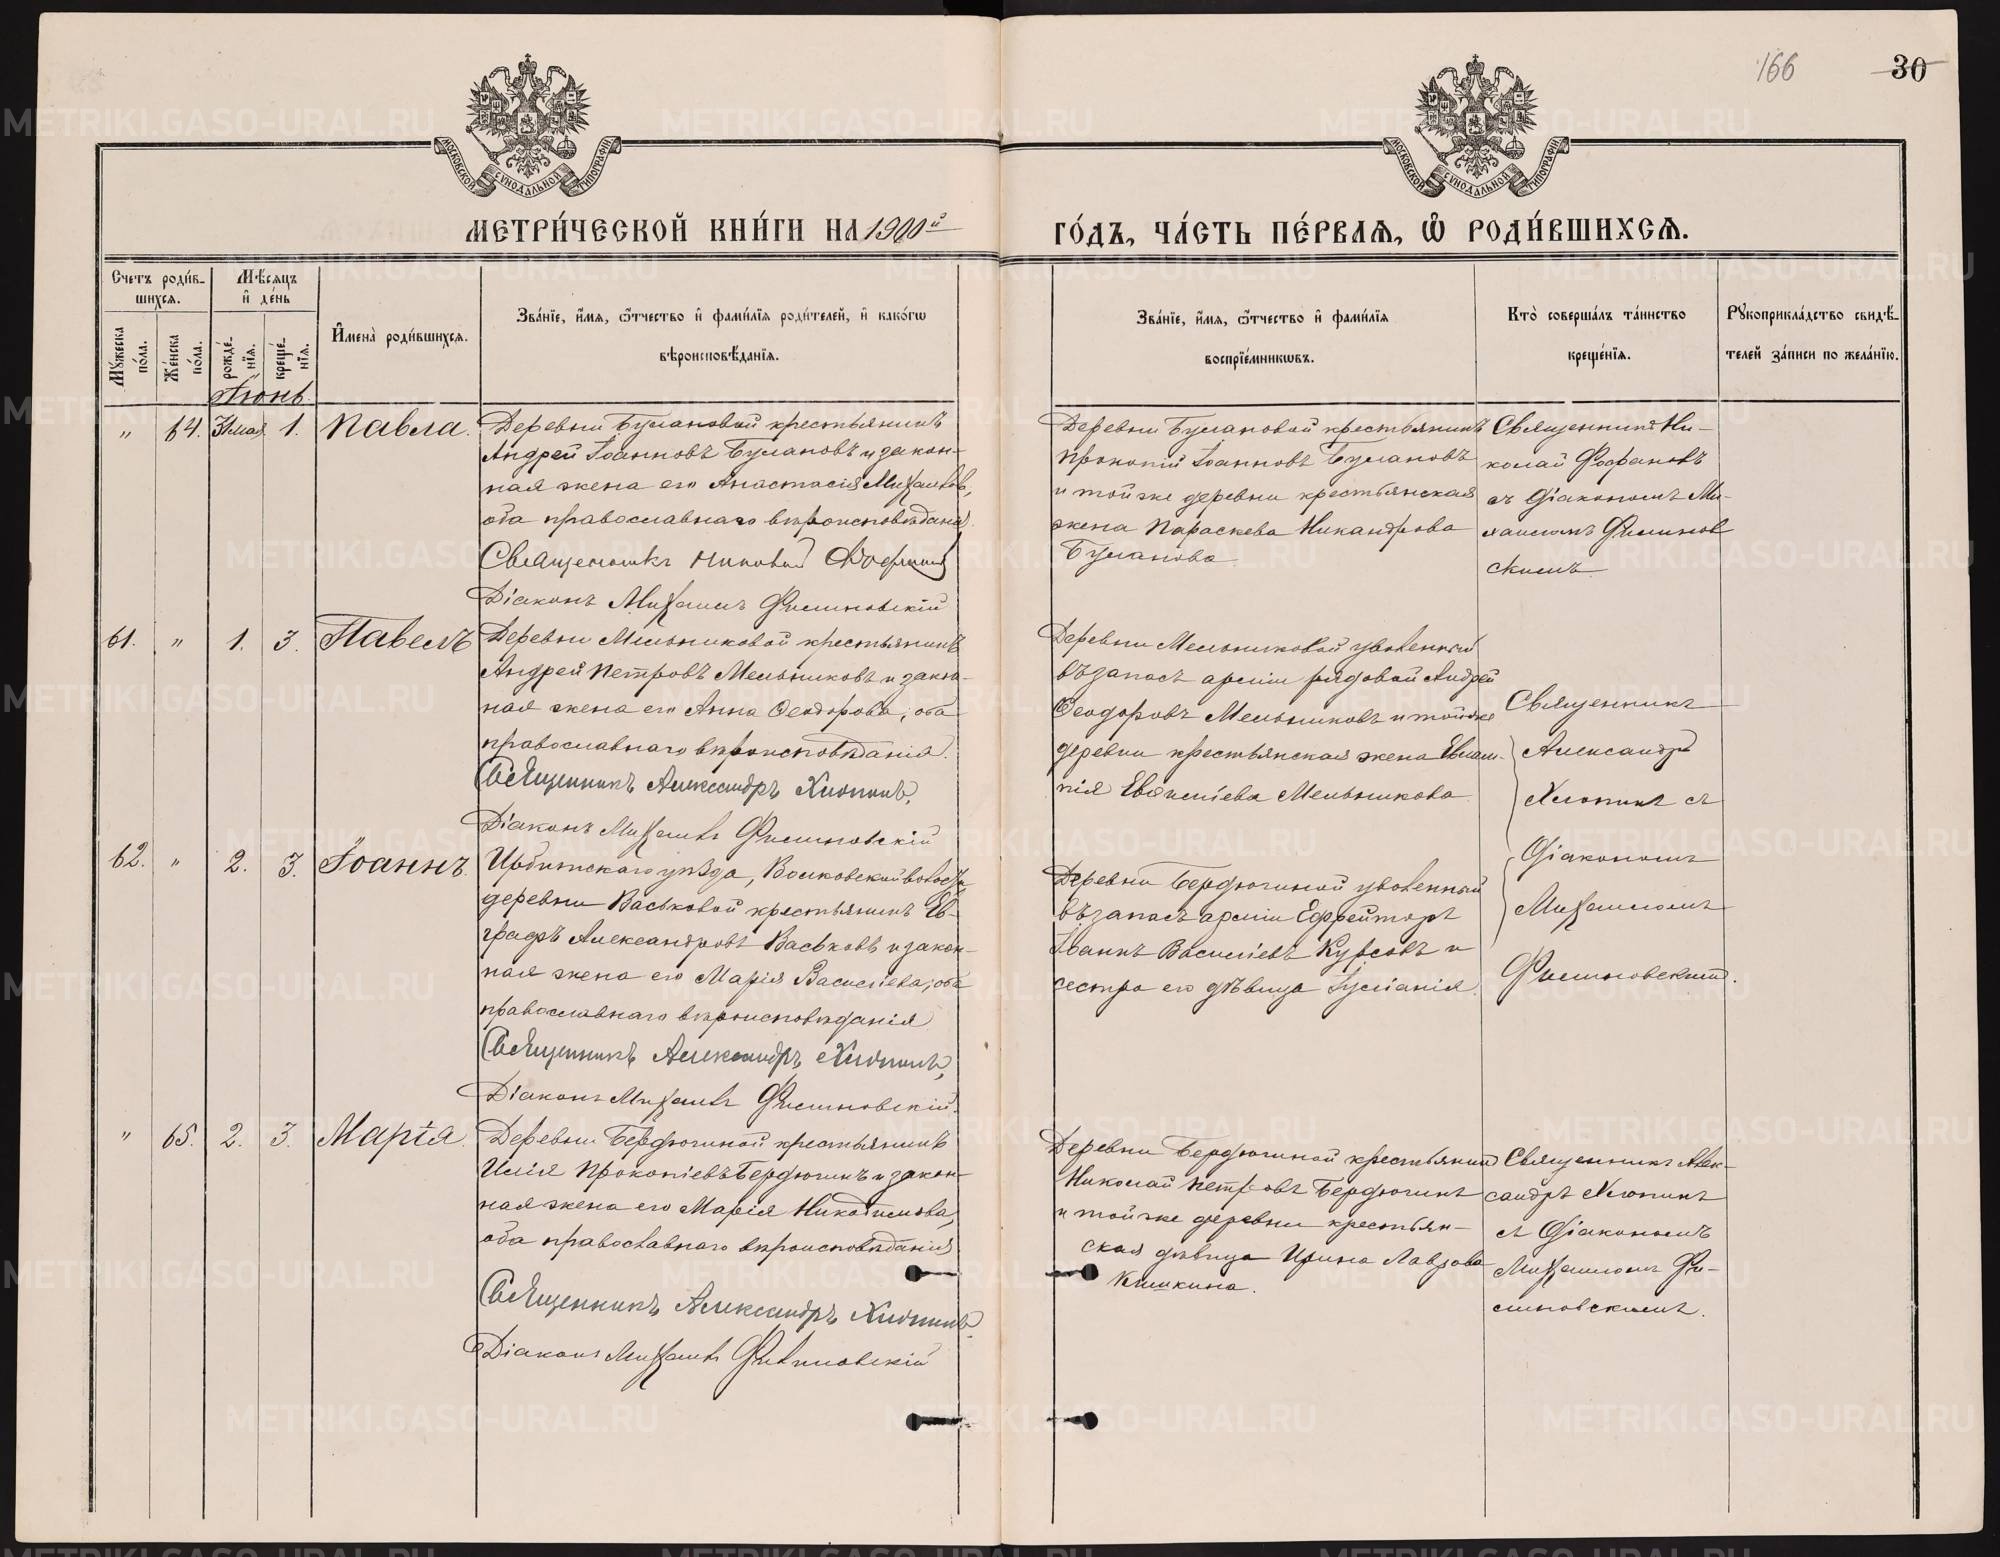 166
30
МОСКОВСКОЙ СѴНОДАЛЬНОЙ ТИПОГРАФІИ
МОСКОВСКОЙ СѴНОДАЛЬНОЙ ТИПОГРАФІИ
МЕТРИ́ЧЕСКОЙ КНИ́ГИ НА 1900й
ГО́ДЪ, ЧА́СТЬ ПЕ́РВАѦ, Ѡ҆ РОДИ́ВШИХСѦ.
Счетъ роди́в-
шихсѧ.
Мѣ́сѧцъ
и҆ де́нь
Мꙋ́жеска по́ла.
Же́нска по́ла.
рожде́-
нїѧ.
креще́-
нїѧ.
И҆мена̀ роди́вшихсѧ.
Зва́нїе, и҆́мѧ, ѻ҆́тчество и҆ фами́лїѧ роди́телей, и҆ како́гѡ
вѣроисповѣ́данїѧ.
Зва́нїе, и҆́мѧ, ѻ҆́тчество и҆ фами́лїѧ
воспрїе́мникѡвъ.
Кто̀ соверша́лъ та́инство
креще́нїѧ.
Рꙋкоприкла́дство свидѣ́-
телей за́писи по жела́нїю.
Іюнь.
„ 64. 31 мая. 1. Павла.
Деревни Булановой крестьянинъ
Андрей Іоанновъ Булановъ и закон-
ная жена его Анастасія Михаилова,
оба православнаго вѣроисповѣданія.
Священникъ Николай Фофановъ
Діаконъ Михаилъ Филиновскій
Деревни Булановой крестьянинъ
Прокопій Іоанновъ Булановъ
и тойже деревни крестьянская
жена Параскева Никандрова
Буланова.
Священникъ Ни-
колай Фофановъ
съ діакономъ Ми-
хаиломъ Филинов
скимъ.
61. „ 1. 3. Павелъ
Деревни Мельниковой крестьянинъ
Андрей Петровъ Мельниковъ и закон-
ная жена его Анна Ѳеодорова, оба
православнаго вѣроисповѣданія.
Священникъ Александръ Хлопинъ,
Діаконъ Михаилъ Филиновскій
Деревни Мельниковой уволенный
въ запасъ арміи рядовой Андрей
Ѳеодоровъ Мельниковъ и тойже
деревни крестьянская жена Евлам-
пія Мельникова
Священникъ
Александръ
Хлопинъ съ
діакономъ
Михаиломъ
Филиновский.
62. „ 2. 3. Іоаннъ.
Ирбитскаго уѣзда, Волковской волости,
деревни Васьковой крестьянинъ Ев-
графъ Александровъ Васьковъ и закон-
ная жена его Марія Василіева, оба
православнаго вѣроисповѣданія
Священникъ Александръ Хлопинъ,
Діаконъ Михаилъ Филиновскій.
Деревни Бердюгиной уволенный
въ запасъ арміи Ефрейторъ
Іоаннъ Василіевъ Курсовъ и
сестра его дѣвица Іуліанія.
„ 65. 2. 3. Марія.
Деревни Бердюгиной крестьянинъ
Илія Прокопіевъ Бердюгинъ и закон-
ная жена его Марія Никодимова,
оба православнаго вѣроисповѣданія
Священникъ Александръ Хлопинъ.
Діаконъ Михаилъ Филиновскій
Деревни Бердюгиной крестьянинъ
Николай Петровъ Бердюгинъ
и тойже деревни крестьян-
ская дѣвица Ирина Лаврова
Кишкина.
Священникъ Алек-
сандръ Хлопинъ
съ діакономъ
Михаиломъ Фи-
линовскимъ.
METRIKI.GASO-URAL.RU